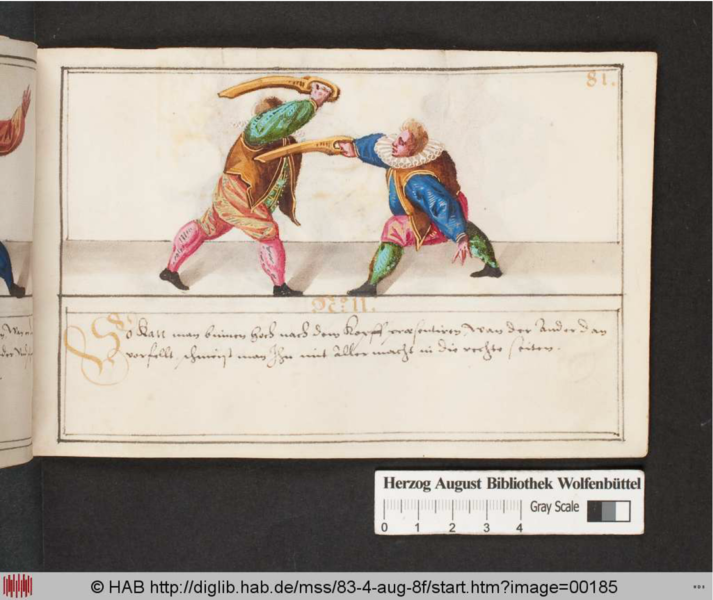 81.
No 11.
So kan man binnen hoch nach dem Kopff präsentiren, wan der Ander dan
verfelt, man Ihn mit Aller macht in die rechte seiten.
Herzog August Bibliothek Wolfenbüttel
Gray Scale
0 1 2 3 4
© HAB http://diglib.hab.de/mss/83-4-aug-8f/start.htm?image=00185